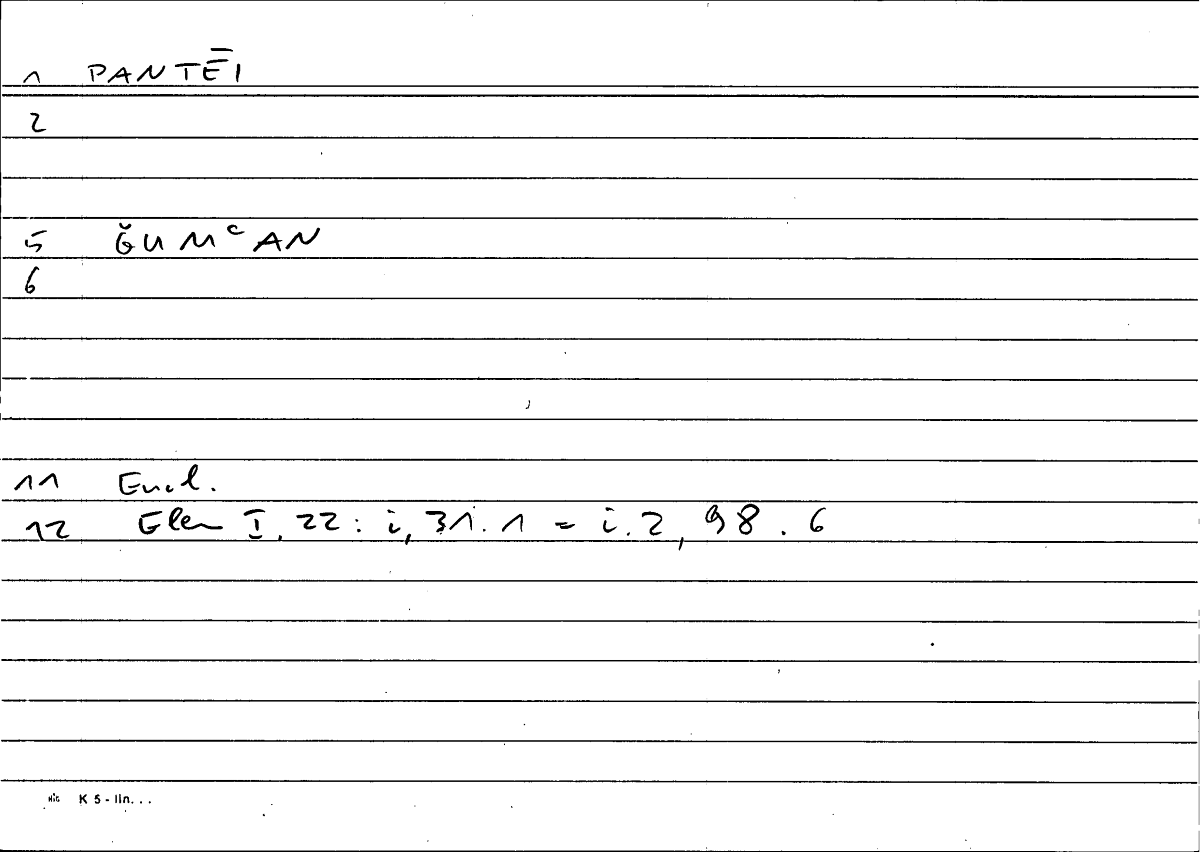 1 PANTĒI
2
5 ǦUMʿAN
6
11 Eucl.
12 Elem I, 22: i, 31.1 = i.2, 98.6
K 5 - lin. . .